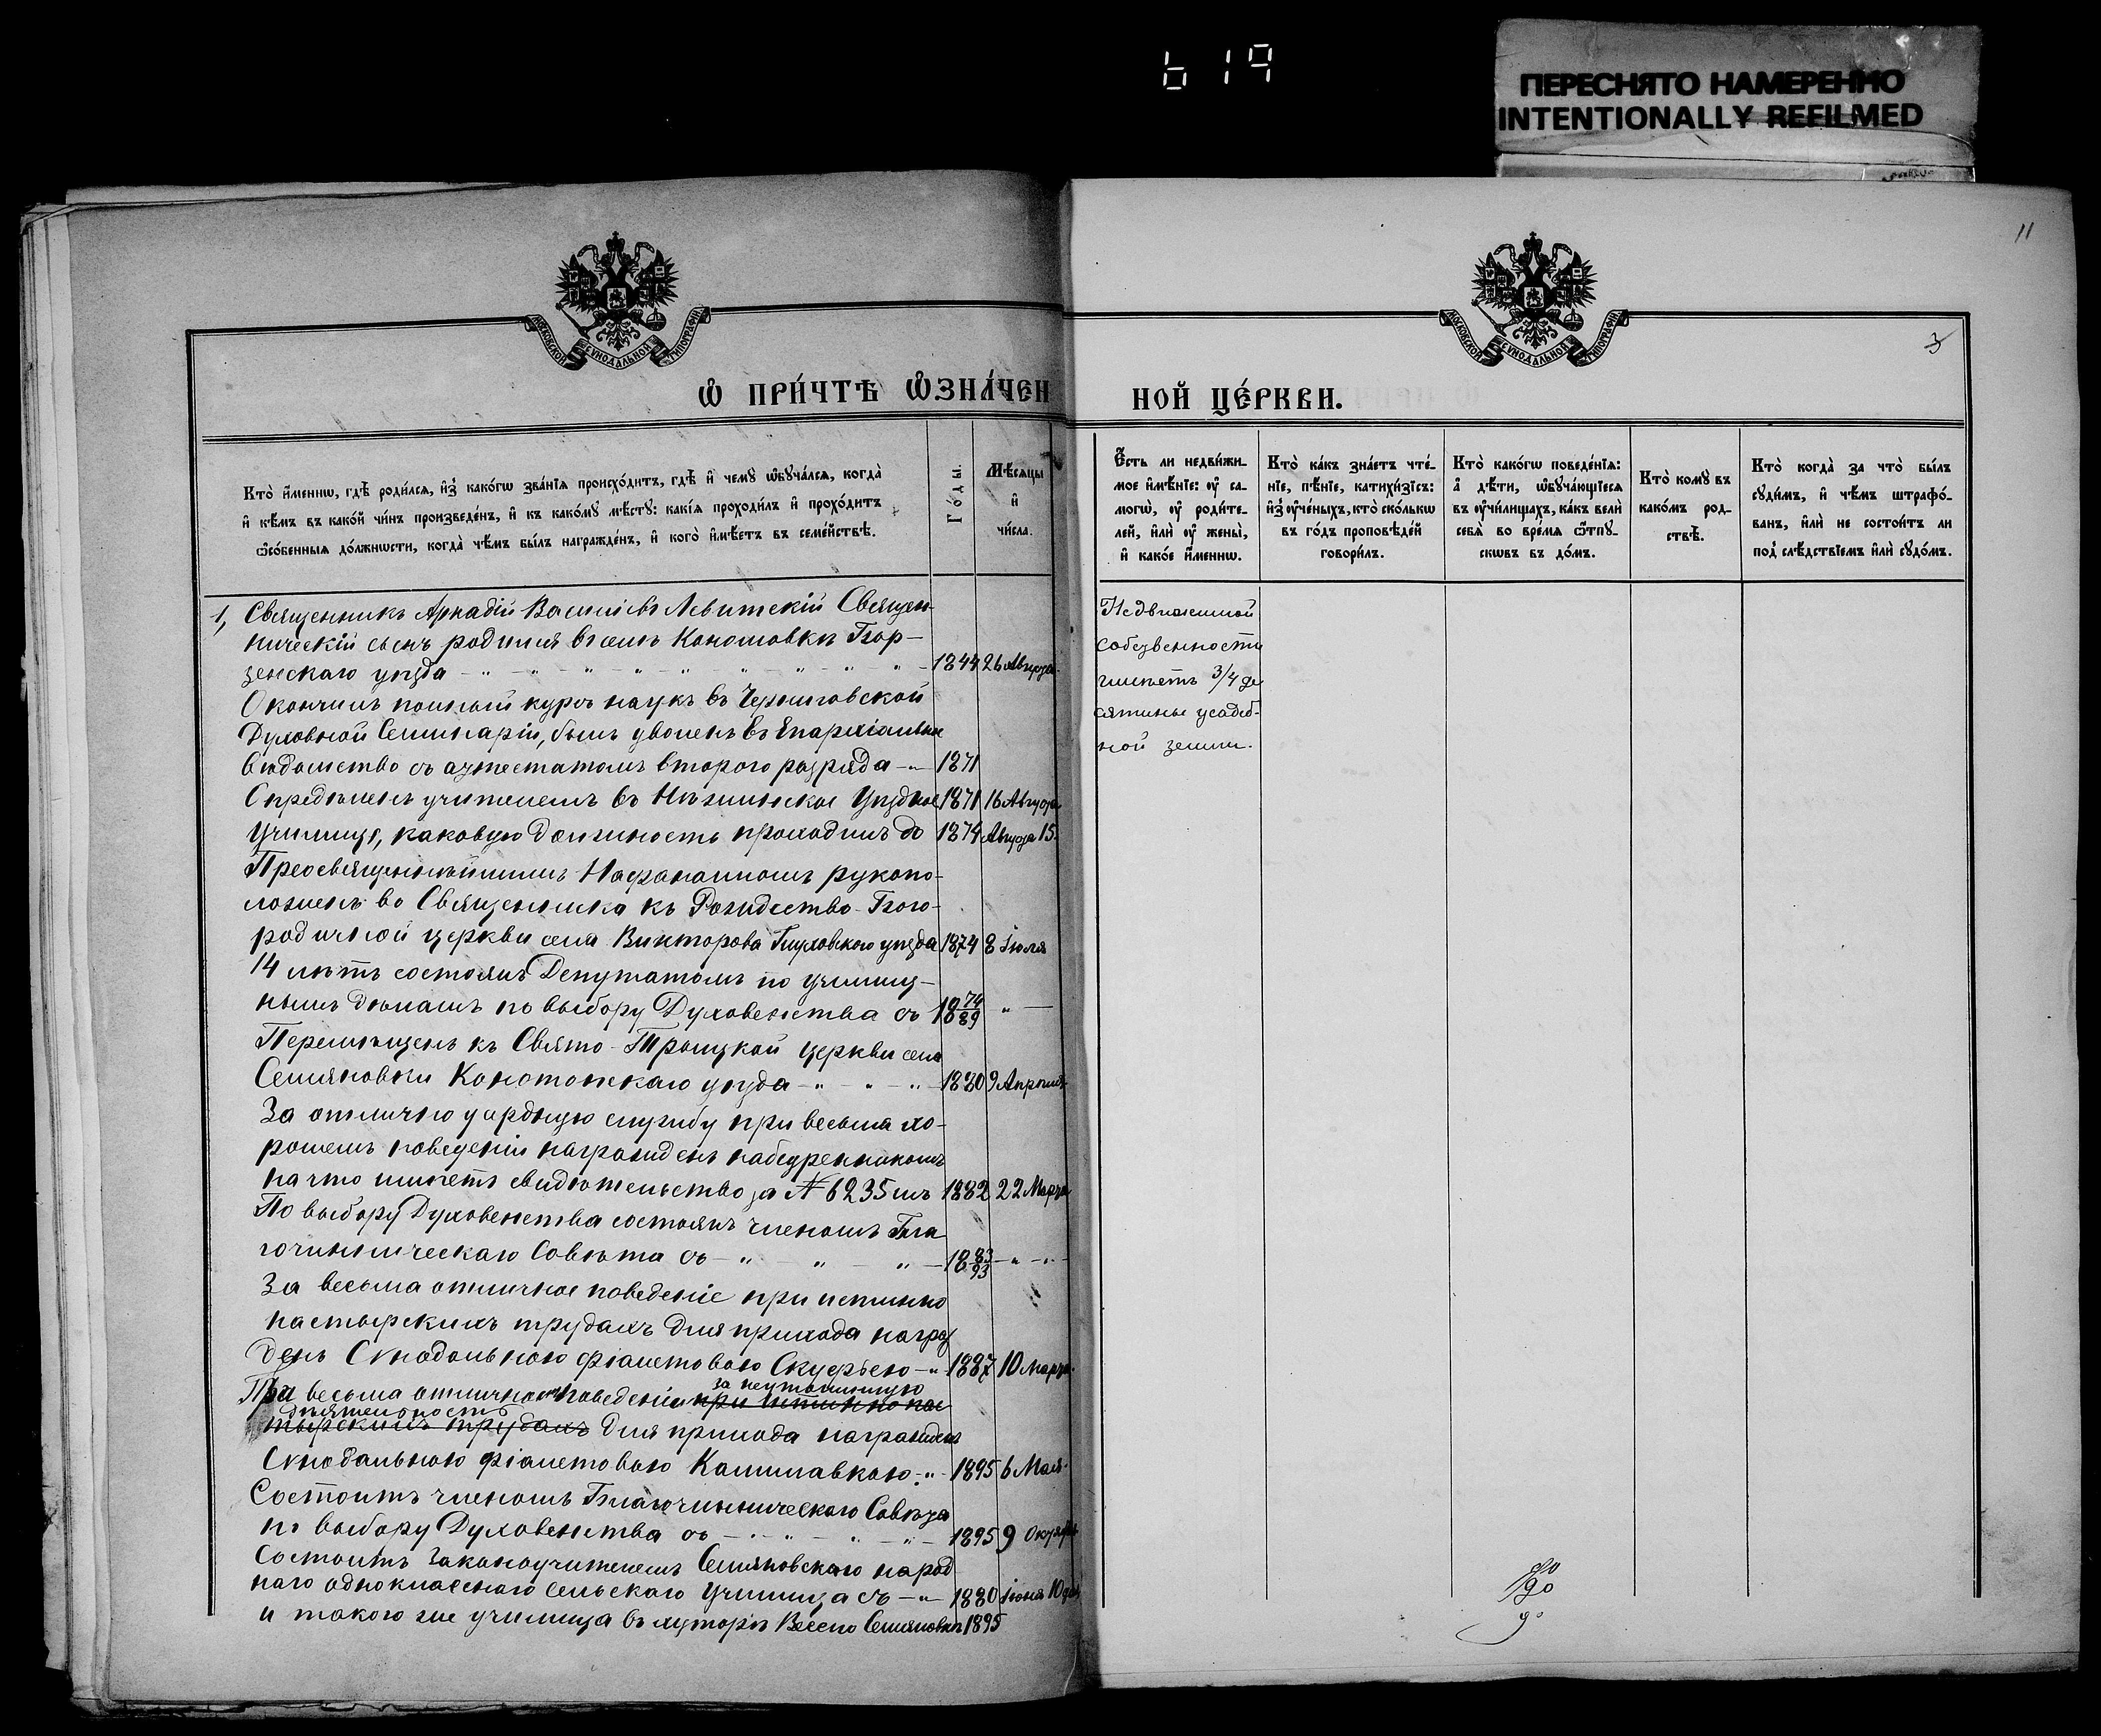 619
ПЕРЕСНЯТО НАМЕРЕННО
INTENTIONALLY REFILMED
11
МОСКОВСКОЙ СУНОДАЛЬНОЙ ТИПОГРАФІИ
МОСКОВСКОЙ СУНОДАЛЬНОЙ ТИПОГРАФІИ
3
Ѡ҆ ПРИ́ЧТѢ Ѡ҆ЗНА́ЧЕН
НОЙ ЦЕ́РКВИ.
Кто̀ и҆́менно, гдѣ̀ роди́лся, и҆з̾ какѡ́гѡ зва́нїя происхо́дитъ, гдѣ̀ и҆ чемꙋ̀ ѡ҆бꙋча́лся, когда̀
и҆ кѣ́мъ въ како́й чи́нъ произведе́нъ, и҆ къ како́мꙋ мѣ́стꙋ: какі́я проходи́лъ и҆ прохо́дитъ
ѻ҆со́бенныя до́лжности, когда̀ чѣ́мъ бы́лъ награжде́нъ, и҆ кого̀ и҆мѣ́етъ въ семе́йствѣ.
Го́ды.
Мѣ́сяцы
и҆
чи́сла.
Є҆́сть ли недви́жи-
мое и҆мѣ́нїе: ᲂу҆ са-
могѡ̀, ᲂу҆ роди́те-
лей, и҆лѝ ᲂу҆ жены̀,
и҆ како́е и҆́менно.
Кто̀ ка́къ зна́етъ чте́-
нїе, пѣ́нїе, катихи́зїсъ:
и҆з̾ ᲂу҆че́ныхъ, кто̀ ско́лькѡ
въ го́дъ проповѣ́дей
говори́лъ.
Кто̀ како́гѡ поведе́нїя:
а҆ дѣ́ти, ѡ҆бꙋча́ющїеся
въ ᲂу҆чи́лищахъ, ка́къ велѝ
себѧ̀ во вре́мя ѿпꙋ-
сковъ въ до́мъ.
Кто̀ комꙋ̀ въ
како́мъ род-
ствѣ̀.
Кто̀ когда̀ за что̀ бы́лъ
сꙋди́мъ, и҆ чѣ́мъ штрафо́-
ванъ, и҆лѝ не состои́тъ ли
под̾ слѣ́дствїемъ и҆лѝ сꙋдо́мъ.
1, Священникъ Аркадій Васильевъ Левитскій Священ-
ническій сынъ родился въ селѣ Коношовкѣ Борз-
зенскаго уѣзда 1844 26 Августа
Окончилъ полный курсъ наукъ въ Черниговской
Духовной Семинаріи, былъ уволенъ въ Епархіальное
вѣдомство съ аттестатомъ втораго разряда 1871
Опредѣленъ учителемъ въ Нѣжинское Уѣздное 1871 16 Августа
Училище, каковую должность проходилъ до 1874 Августа 15.
Преосвященнѣйшимъ Нафанаиломъ рукопо-
ложенъ во Священника къ Рождество-Бого-
родичной церкви села Викторова Глуховского уѣзда 1874 8 Іюля
14 лѣтъ состоялъ Депутатомъ по училищ-
нымъ дѣламъ по выбору Духовенства съ 18 74/89
Перемѣщенъ къ Свято-Троицкой церкви села
Семяновки Конотопскаго уѣзда 1880 9 Апрѣля
За отлично усердную службу при весьма хо-
рошемъ поведеніи награжденъ набедренникомъ
на что имѣетъ свидѣтельство за № 6235 мъ 1882 22 Марта
По выбору Духовенства состоялъ членомъ Бла
гочинническаго Совѣта съ 18 83/93
За весьма отличное поведеніе при истинно
пастырскихъ трудахъ для прихода награж
денъ Сѵнодальною фіолетовою Скуфьею 1887 10 Марта.
При весьма отличномъ поведеніи при истинно пас
за неутомимую
дѣятельность
тырскихъ трудахъ для прихода награжденъ
Сѵнодальною фіолетовою Камилавкою 1895 6 Мая.
Состоитъ членомъ Благочинническаго Совѣта
по выбору Духовенства съ 1895 9 Октября
Состоитъ Законоучителемъ Семяновскаго народ
наго однокласснаго сельскаго Училища съ 1880 Іюня 10 дня
и такого же училища въ хуторѣ Весело Семяновкѣ 1895
Недвижимой
собственности
имѣетъ 3/4 де
сятины усадеб-
ной земли.